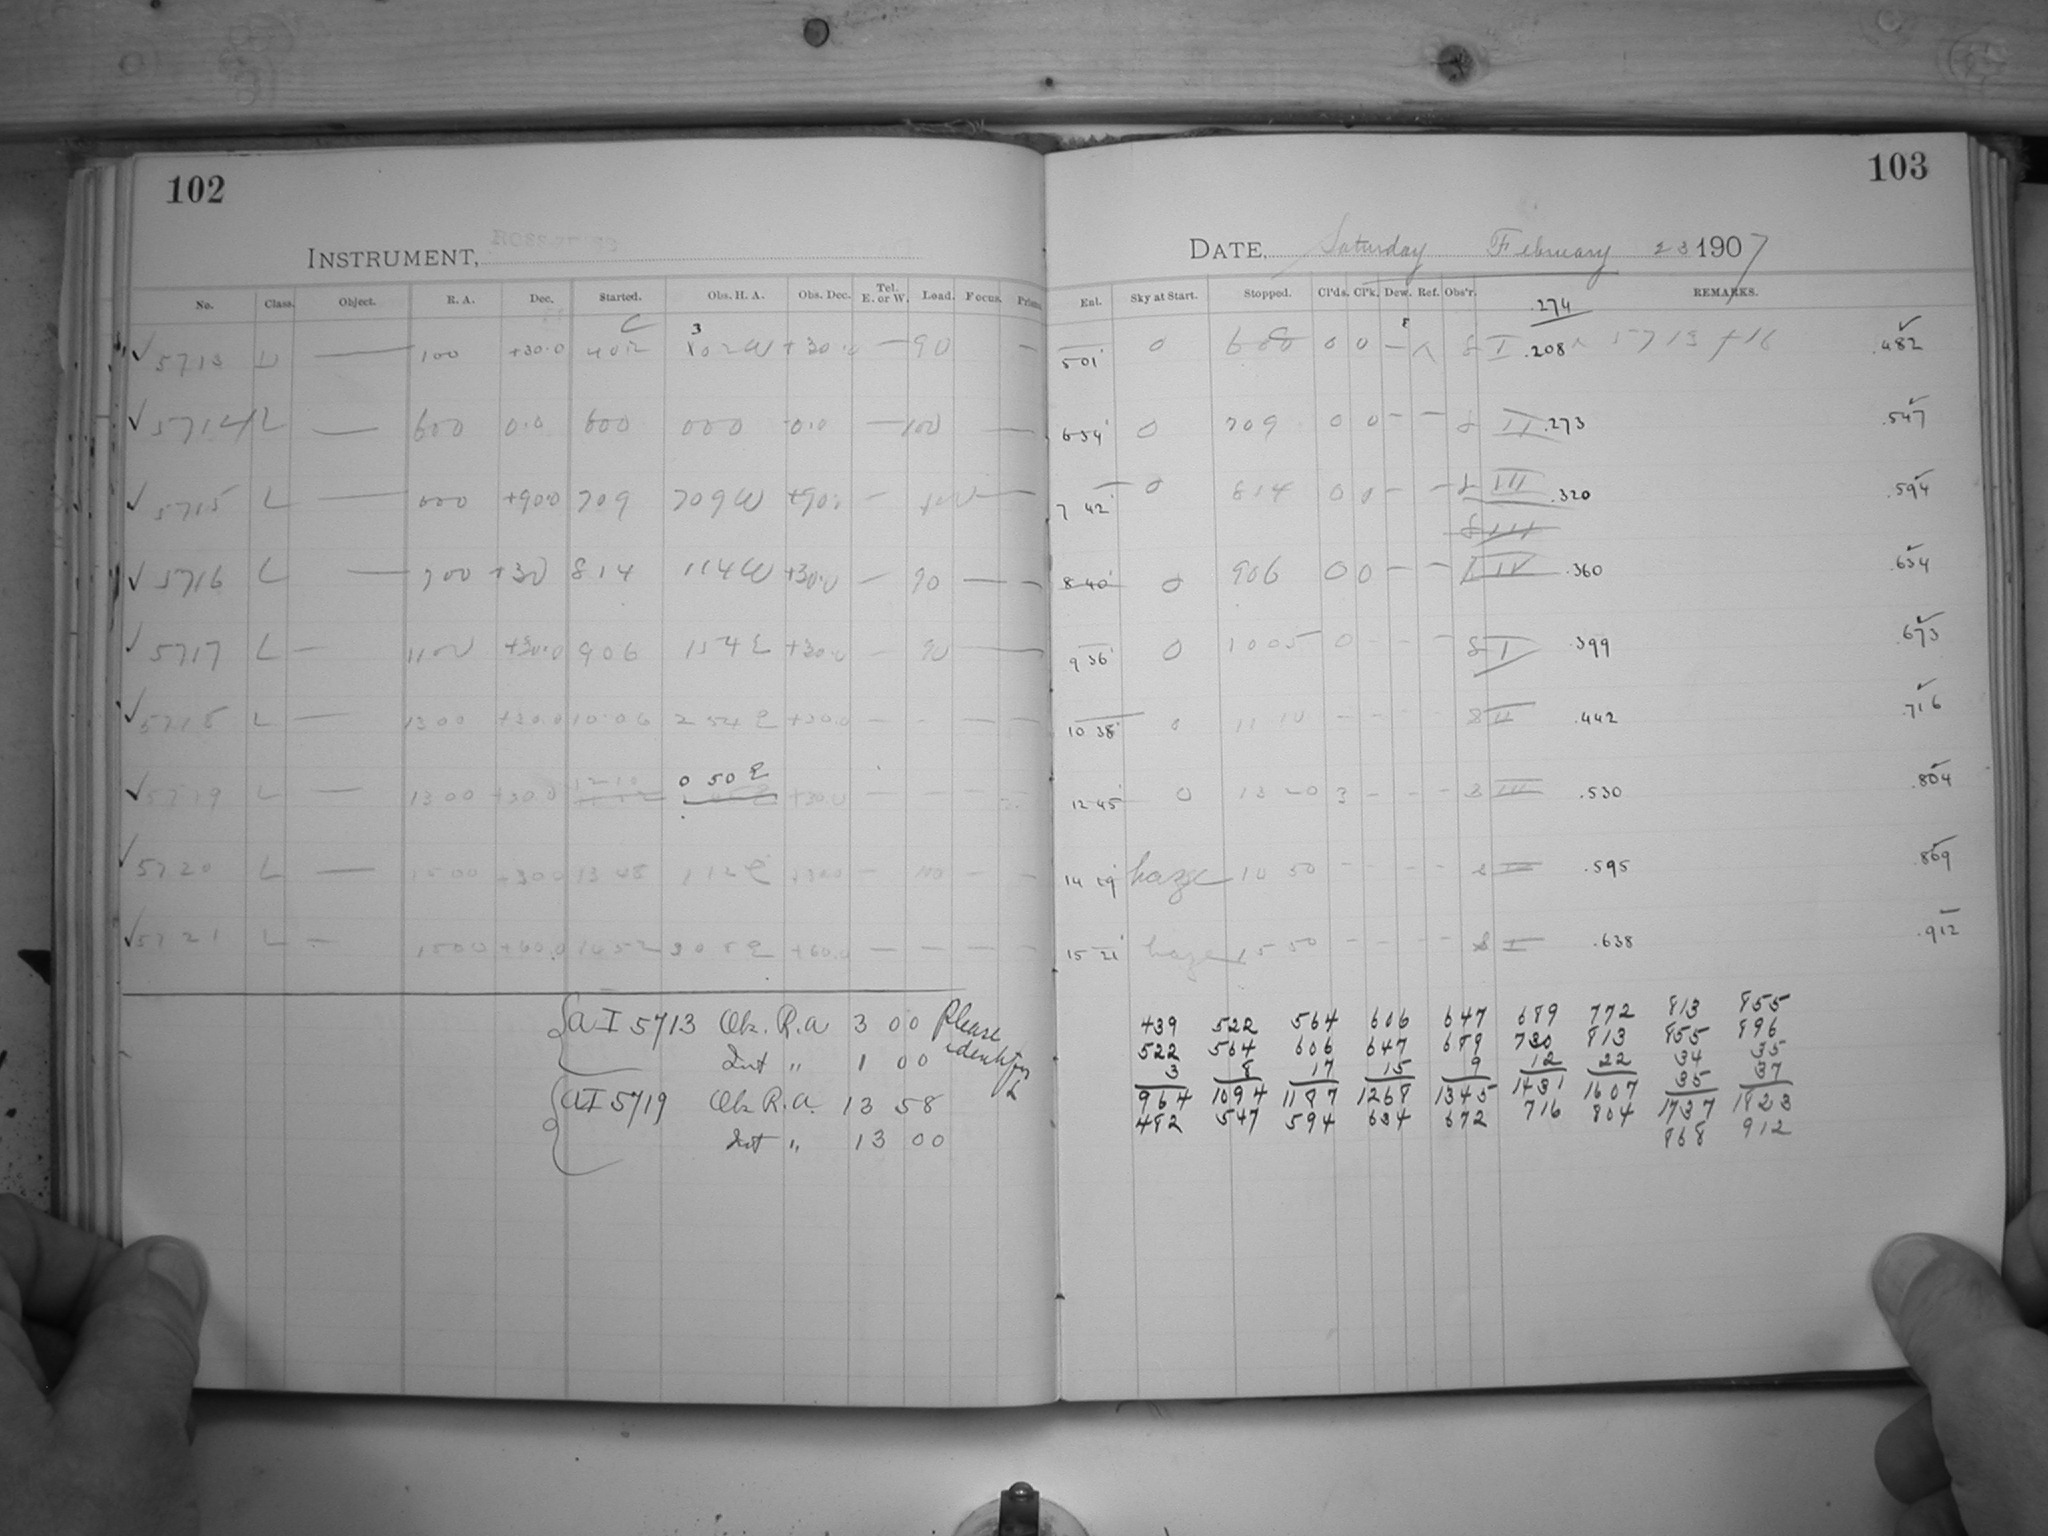 102
INSTRUMENT,
No. Class. Object. R. A. Dec. Started. Obs. H. A. Obs. Dec. Tel. E. or W. Load. Focus. Prisms
✓ 5713 L — 100 +30.0 402 3 02W +30.0 — 90 —
✓ 5714 L — 600 0.0 600 000 0.0 — 100 —
✓ 5715 L — 000 +90.0 709 709W +90. — —
✓ 5716 L — 700 +30 814 114W +30.0 — 90 — —
✓ 5717 L — 1100 +30.0 906 154E +30.0 — 90 —
✓ 5718 L — 1300 +30.0 10.06 254E +30.0 — - — —
✓ 5719 L — 1300 +30.0 1210 0 50E +30.0 — — —
✓ 5720 L — 1500 +30.0 1348 112E +30.0 — 100 - -
✓ 5721 L — 1500 +60.0 1452 308E +60.0 — — — —
AI 5713 Ob. R.a 3 00 Please
Int " 1 00 identify
AI 5719 Ob R.a. 13 58
Int " 13 00
103
DATE, Saturday February 23 1907
Ent. Sky at Start. Stopped. Cl'ds. Cl'k. Dew. Ref. Obs'r. REMARKS.
.274
501 0 600 0 0 — I .208 5713 +16 .482
654 0 709 0 0 — — II .273 .547
7 42 0 814 0 0 — — III .320 .594
8 40 0 906 0 0 — — IV .360 .634
9 36 0 1005 0 - - - I .399 .673
10 38 0 1110 - - - - II .442 .716
12 45 0 1320 3 - - - III .530 .804
14 19 haze - - - - .595 .869
15 21 haze 1550 - - - - I .638 .912
439 522 564 606 647 689 772 813 855
522 564 606 647 689 730 813 855 896
3 8 17 15 9 12 22 34 35
35 37
964 1094 1187 1268 1345 1431 1607 1737 1823
482 547 594 634 672 716 804 868 912